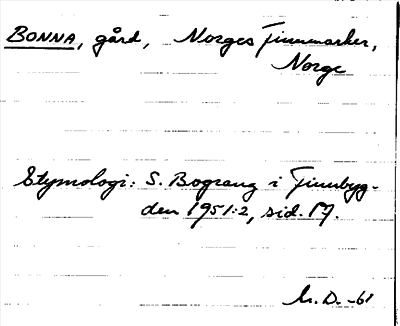 BONNA, gård, Norges Finnmarker,
Norge
Etymologi: S. Bograng i Finnbyg-
den 1951:2, sid. 17.
M.D. -61